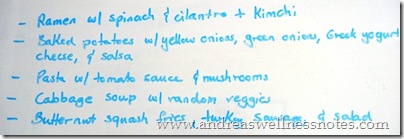 - Ramen w/ spinach & cilantro + Kimchi
- Baked potatoes w/ yellow onions, green onions, Greek yogurt
cheese, & salsa
- Pasta w/ tomato sauce & mushrooms
- Cabbage soup w/ random veggies
- Butternut squash fries, turkey sausage, & salad
www.andreaswellnessnotes.com